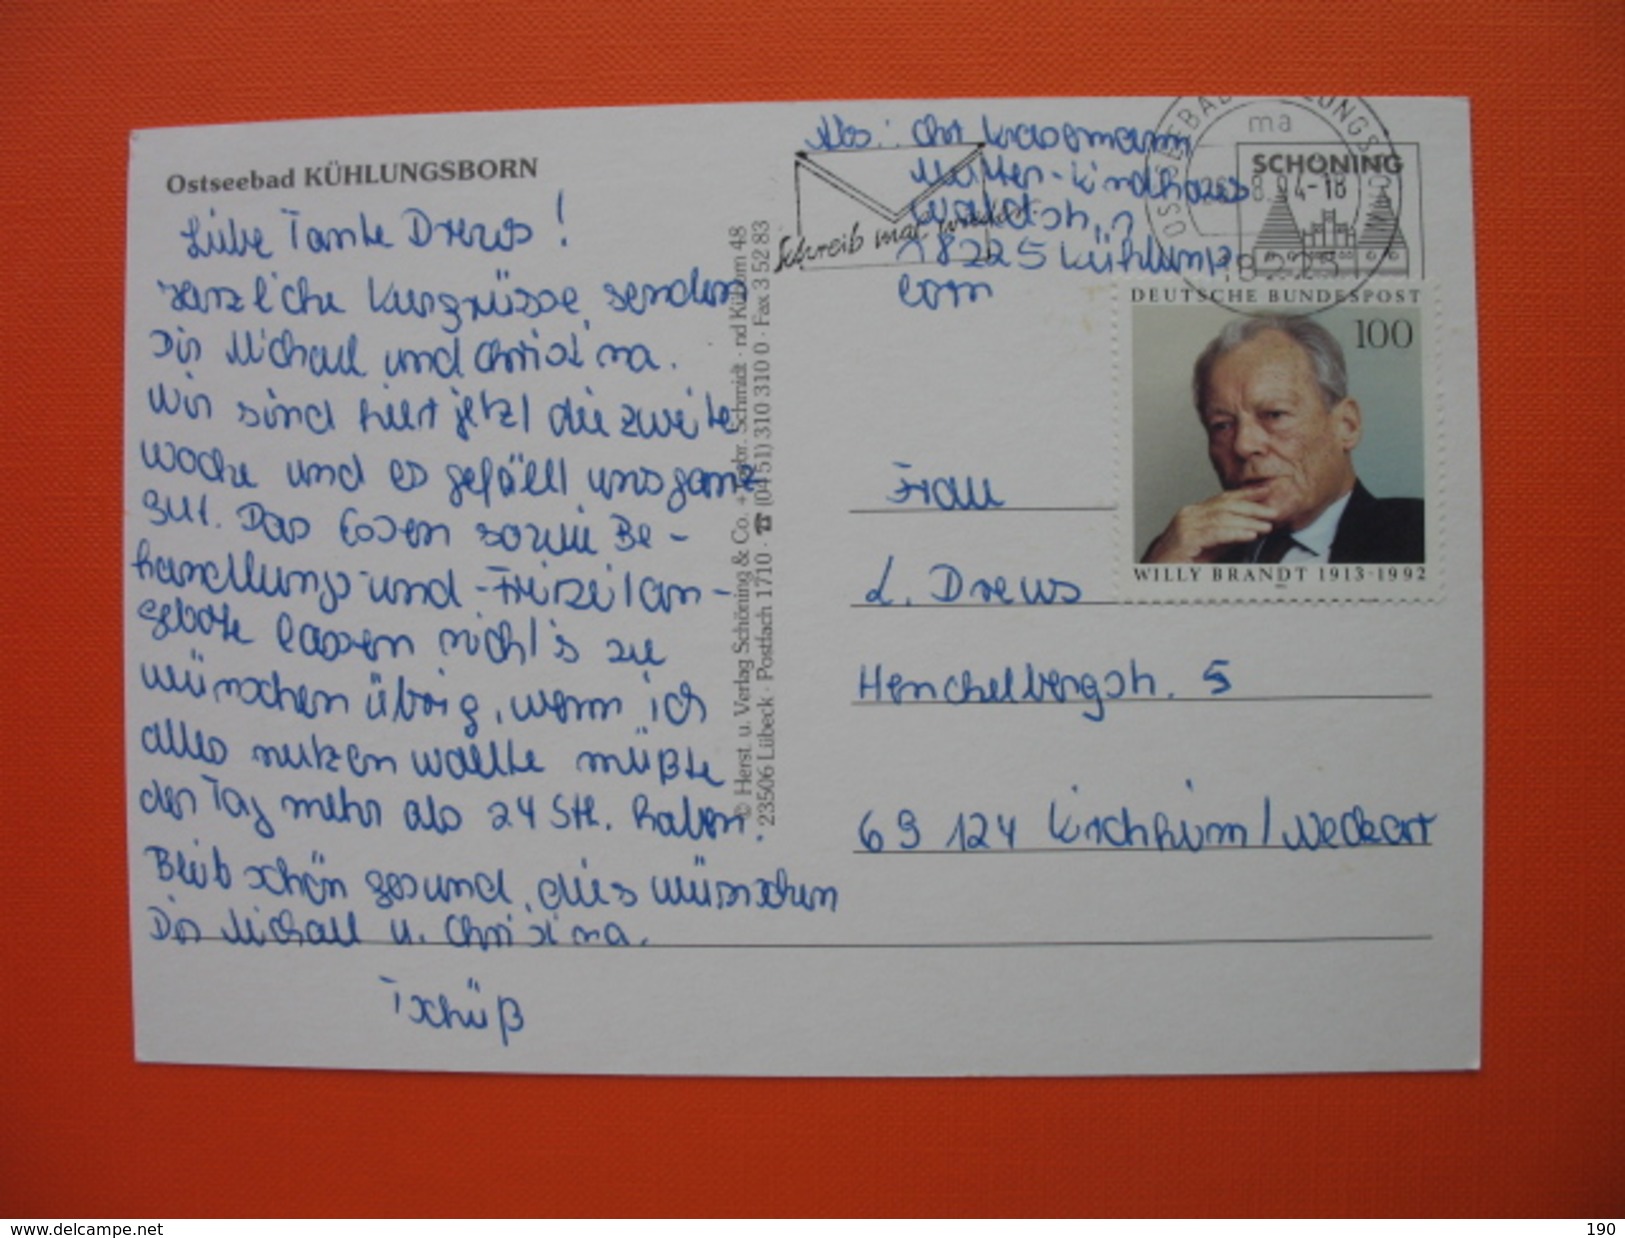 Ostseebad KÜHLUNGSBORN
Liebe Tante Drews!
herzliche Kurgrüsse senden
Dir Michael und Christina.
Wir sind hier jetzt die zweite
Woche und es gefällt uns ganz
gut. Das Essen sowie Be-
handlungs- und -Freizeitan-
gebote lassen nicht's zu
wünschen übrig, wenn ich
alles nutzen wollte müßte
der Tag mehr als 24 Std. haben.
Bleib schön gesund, dies wünschen
Dir Michael u. Christina.
Tschüß
© Herst. u. Verlag Schöning & Co. + Gebr. Schmidt
23506 Lübeck · Postfach 1710 · ☎ (04 51) 310 310 0 · Fax 3 52 83
Abs.: Chr.
Mutter-Kindhaus
Waldstr.
18225 Kühlungs
born
Schreib mal wieder
OSTSEEBAD KÜHLUNGSBORN
ma
-18
18225
SCHÖNING
DEUTSCHE BUNDESPOST
100
WILLY BRANDT 1913-1992
Frau
L. Drews
Henchelbergstr. 5
69 124 Kirchheim/Neckar
www.delcampe.net
the_collector
190